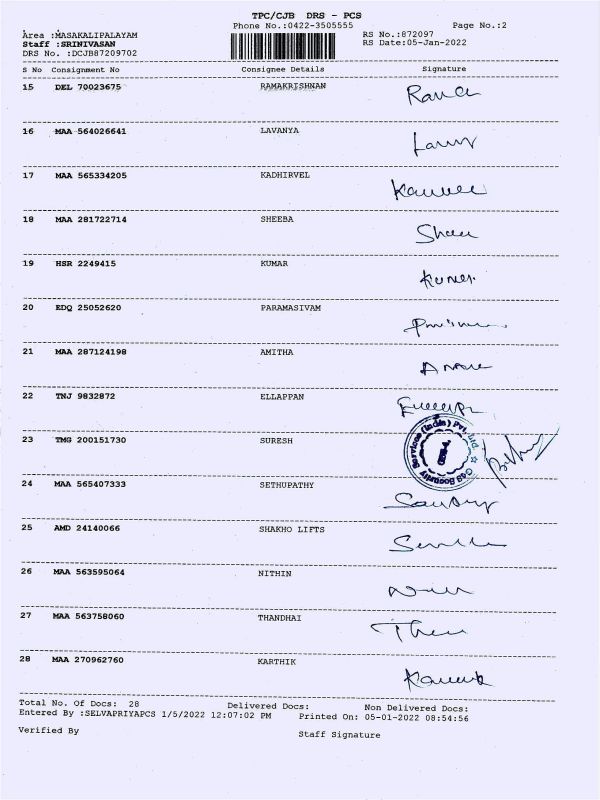 TPC/CJB DRS - PCS
Phone No.:0422-3505555 Page No.:2
Area :MASAKALIPALAYAM RS No.:872097
Staff :SRINIVASAN RS Date:05-Jan-2022
DRS No. :DCJB87209702
S No Consignment No Consignee Details Signature
15 DEL 70023675 RAMAKRISHNAN
16 MAA 564026641 LAVANYA
17 MAA 565334205 KADHIRVEL
18 MAA 281722714 SHEEBA
19 HSR 2249415 KUMAR
20 EDQ 25052620 PARAMASIVAM
21 MAA 287124198 AMITHA
22 TNJ 9832872 ELLAPPAN
23 TMG 200151730 SURESH
G4S Security Services (India) Pvt. Ltd.
24 MAA 565407333 SETHUPATHY
25 AMD 24140066 SHAKHO LIFTS
26 MAA 563595064 NITHIN
27 MAA 563758060 THANDHAI
28 MAA 270962760 KARTHIK
Total No. Of Docs: 28 Delivered Docs: Non Delivered Docs:
Entered By :SELVAPRIYAPCS 1/5/2022 12:07:02 PM Printed On: 05-01-2022 08:54:56
Verified By Staff Signature